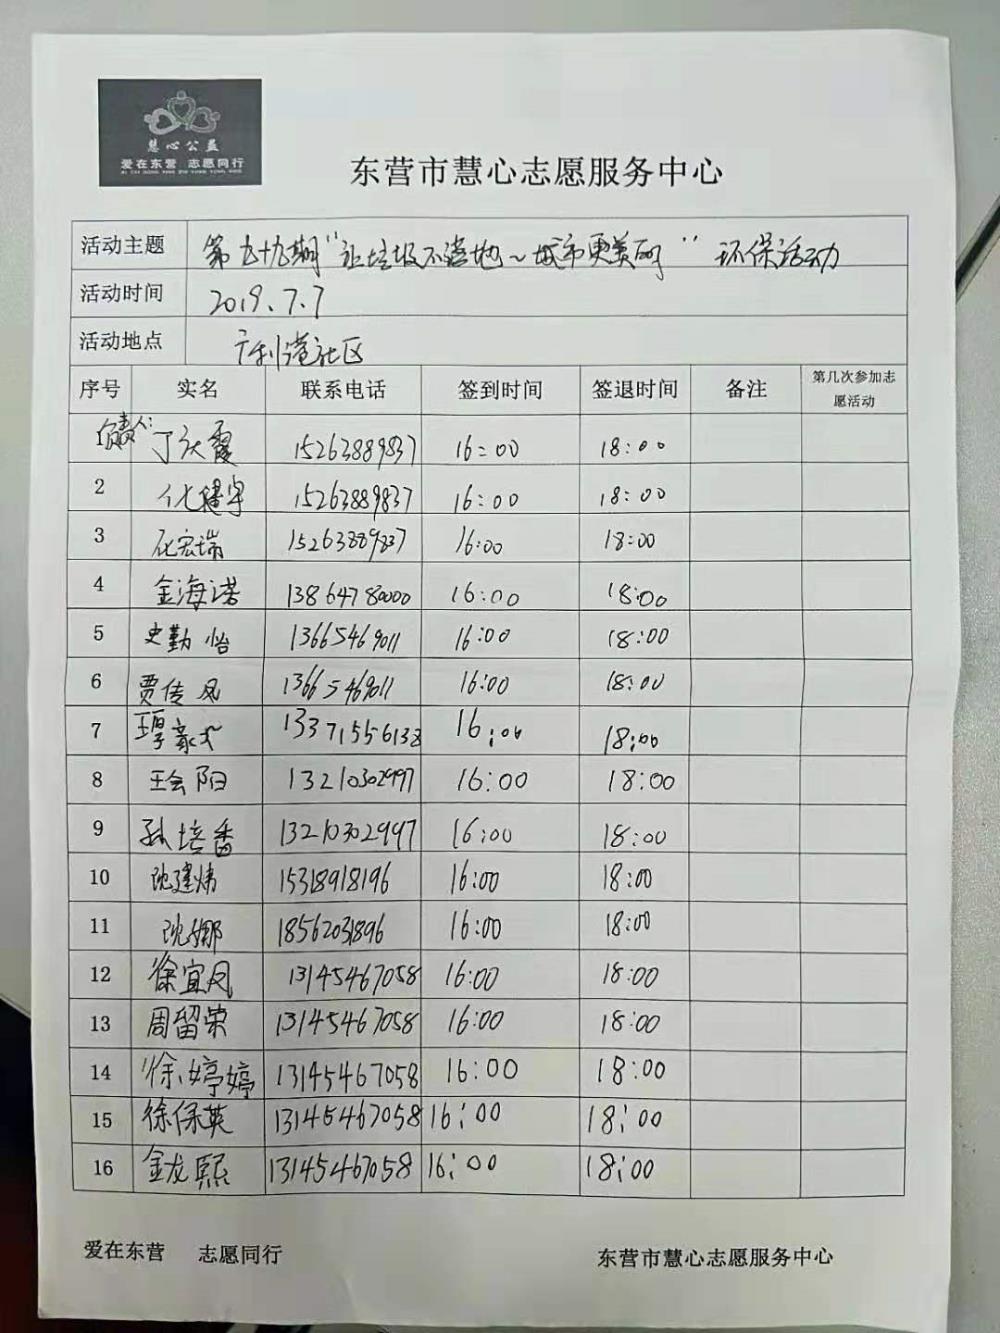 慧心公益
爱在东营 志愿同行
东营市慧心志愿服务中心
活动主题 第九十九期“让垃圾不落地~城市更美丽” 环保活动
活动时间 2019.7.7
活动地点 广利港社区
序号 实名 联系电话 签到时间 签退时间 备注 第几次参加志愿活动
负责人: 丁庆霞 15263889837 16:00 18:00
2 15263889837 16:00 18:00
3 15263889837 16:00 18:00
4 金海诺 13864780000 16:00 18:00
5 史勤怡 13665469011 16:00 18:00
6 贾传凤 13665469011 16:00 18:00
7 13371556138 16:00 18:00
8 王会阳 13210302997 16:00 18:00
9 孙培香 13210302997 16:00 18:00
10 沈建炜 15318918196 16:00 18:00
11 沈娜 18562031896 16:00 18:00
12 徐宜凤 13145467058 16:00 18:00
13 周留荣 13145467058 16:00 18:00
14 徐婷婷 13145467058 16:00 18:00
15 徐保英 13145467058 16:00 18:00
16 金龙熙 13145467058 16:00 18:00
爱在东营 志愿同行 东营市慧心志愿服务中心